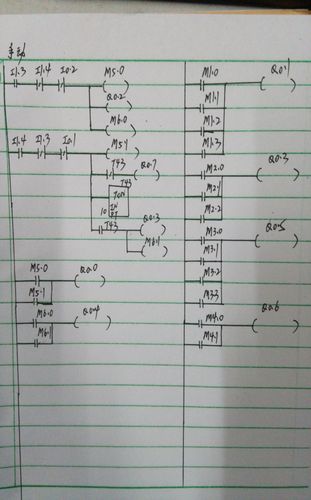 手动
I1.3 I1.4 I0.2 M5.0
Q0.2
M6.0
I1.4 I1.3 I0.1 M5.1
T43 Q0.7
T43
TON
IN
10 PT
T43 Q0.3
M6.1
M5.0 Q0.0
M5.1
M6.0 Q0.4
M6.1
M1.0 Q0.1
M1.1
M1.2
M1.3
M2.0 Q0.3
M2.1
M2.2
M3.0 Q0.5
M3.1
M3.2
M3.3
M4.0 Q0.6
M4.1